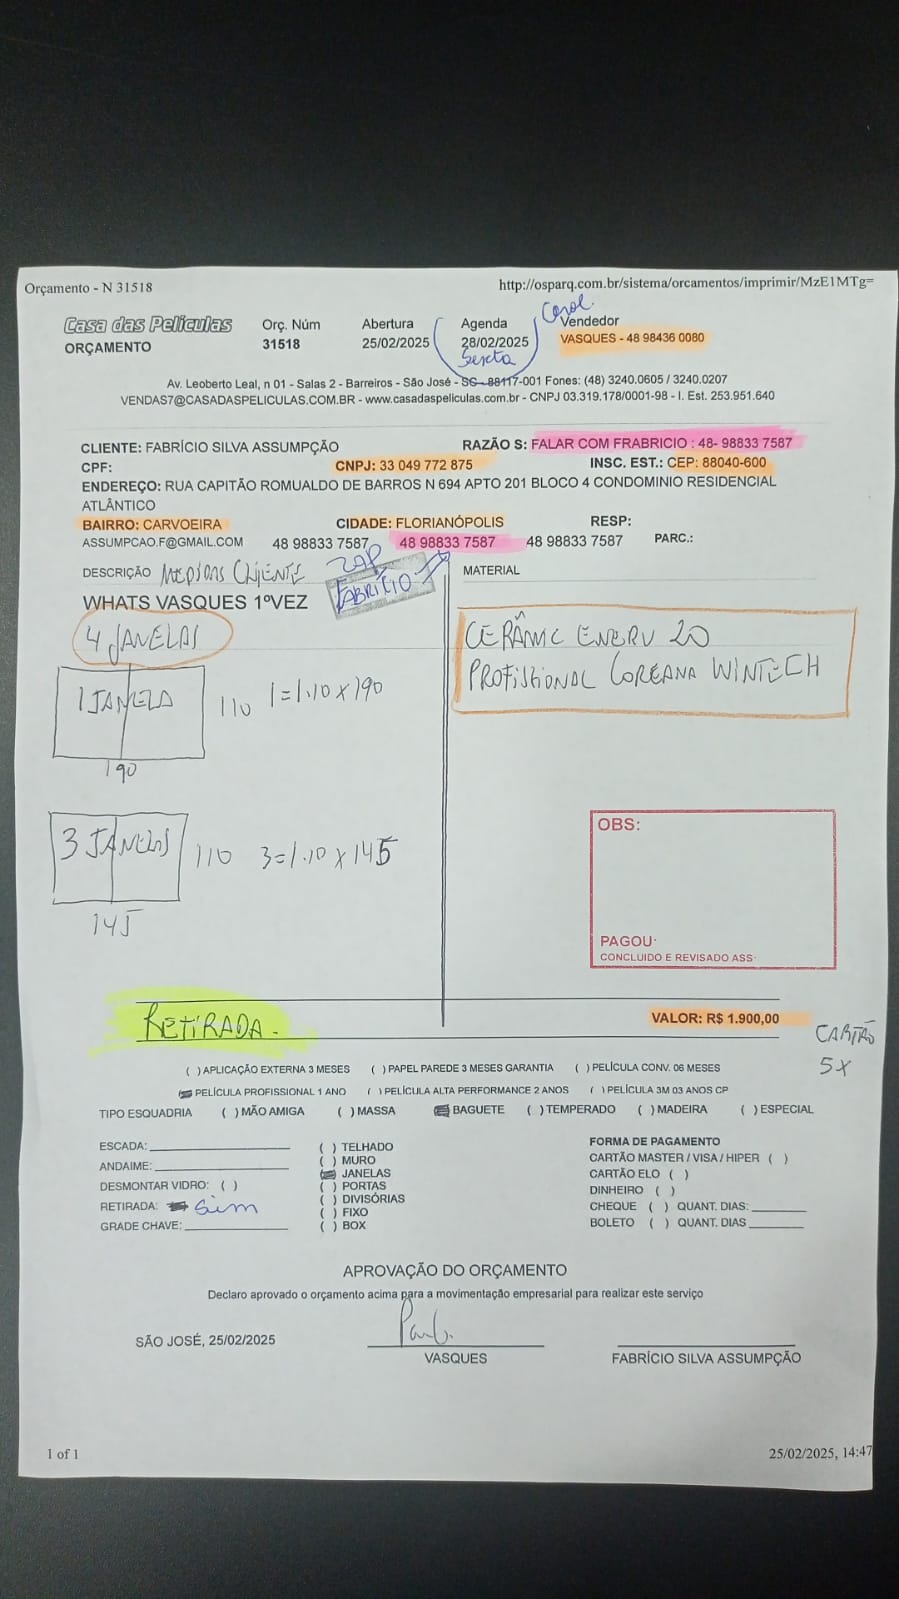 Orçamento - N 31518
http://osparq.com.br/sistema/orcamentos/imprimir/MzE1MTg=
Casa das Películas
ORÇAMENTO
Orç. Núm
31518
Abertura
25/02/2025
Agenda
28/02/2025
Sexta
Carol.
Vendedor
VASQUES - 48 98436 0080
Av. Leoberto Leal, n 01 - Salas 2 - Barreiros - São José - SC - 88117-001 Fones: (48) 3240.0605 / 3240.0207
VENDAS7@CASADASPELICULAS.COM.BR - www.casadaspeliculas.com.br - CNPJ 03.319.178/0001-98 - I. Est. 253.951.640
CLIENTE: FABRÍCIO SILVA ASSUMPÇÃO
RAZÃO S: FALAR COM FRABRICIO : 48- 98833 7587
CPF:
CNPJ: 33 049 772 875
INSC. EST.: CEP: 88040-600
ENDEREÇO: RUA CAPITÃO ROMUALDO DE BARROS N 694 APTO 201 BLOCO 4 CONDOMINIO RESIDENCIAL
ATLÂNTICO
BAIRRO: CARVOEIRA
CIDADE: FLORIANÓPOLIS
RESP:
ASSUMPCAO.F@GMAIL.COM
48 98833 7587
48 98833 7587
48 98833 7587
PARC.:
DESCRIÇÃO MEDIDAS CLIENTE
ZAP
FABRÍCIO
MATERIAL
WHATS VASQUES 1ºVEZ
4 JANELAS
CERÂMIC ENERV 20
PROFISSIONAL COREANA WINTECH
1 JANELA
110
1=1.10 x 190
190
3 JANELAS
110
3=1.10 x 145
145
OBS:
PAGOU:
CONCLUIDO E REVISADO ASS:
RETIRADA.
VALOR: R$ 1.900,00
CARTÃO
5X
( ) APLICAÇÃO EXTERNA 3 MESES ( ) PAPEL PAREDE 3 MESES GARANTIA ( ) PELÍCULA CONV. 06 MESES
PELÍCULA PROFISSIONAL 1 ANO ( ) PELÍCULA ALTA PERFORMANCE 2 ANOS ( ) PELÍCULA 3M 03 ANOS CP
TIPO ESQUADRIA ( ) MÃO AMIGA ( ) MASSA BAGUETE ( ) TEMPERADO ( ) MADEIRA ( ) ESPECIAL
ESCADA:
ANDAIME:
DESMONTAR VIDRO: ( )
RETIRADA: Sim
GRADE CHAVE:
( ) TELHADO
( ) MURO
JANELAS
( ) PORTAS
( ) DIVISÓRIAS
( ) FIXO
( ) BOX
FORMA DE PAGAMENTO
CARTÃO MASTER / VISA / HIPER ( )
CARTÃO ELO ( )
DINHEIRO ( )
CHEQUE ( ) QUANT. DIAS:
BOLETO ( ) QUANT. DIAS
APROVAÇÃO DO ORÇAMENTO
Declaro aprovado o orçamento acima para a movimentação empresarial para realizar este serviço
SÃO JOSÉ, 25/02/2025
VASQUES
FABRÍCIO SILVA ASSUMPÇÃO
1 of 1
25/02/2025, 14:47